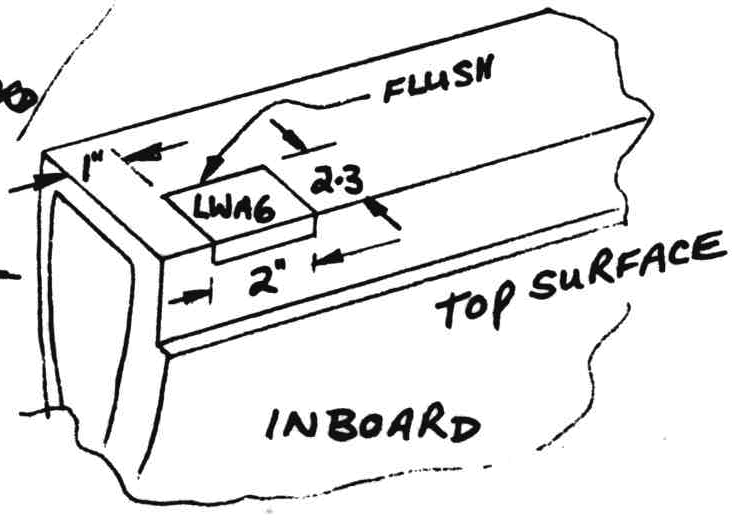 FLUSH
1"
2.3
LWA6
2"
TOP SURFACE
INBOARD